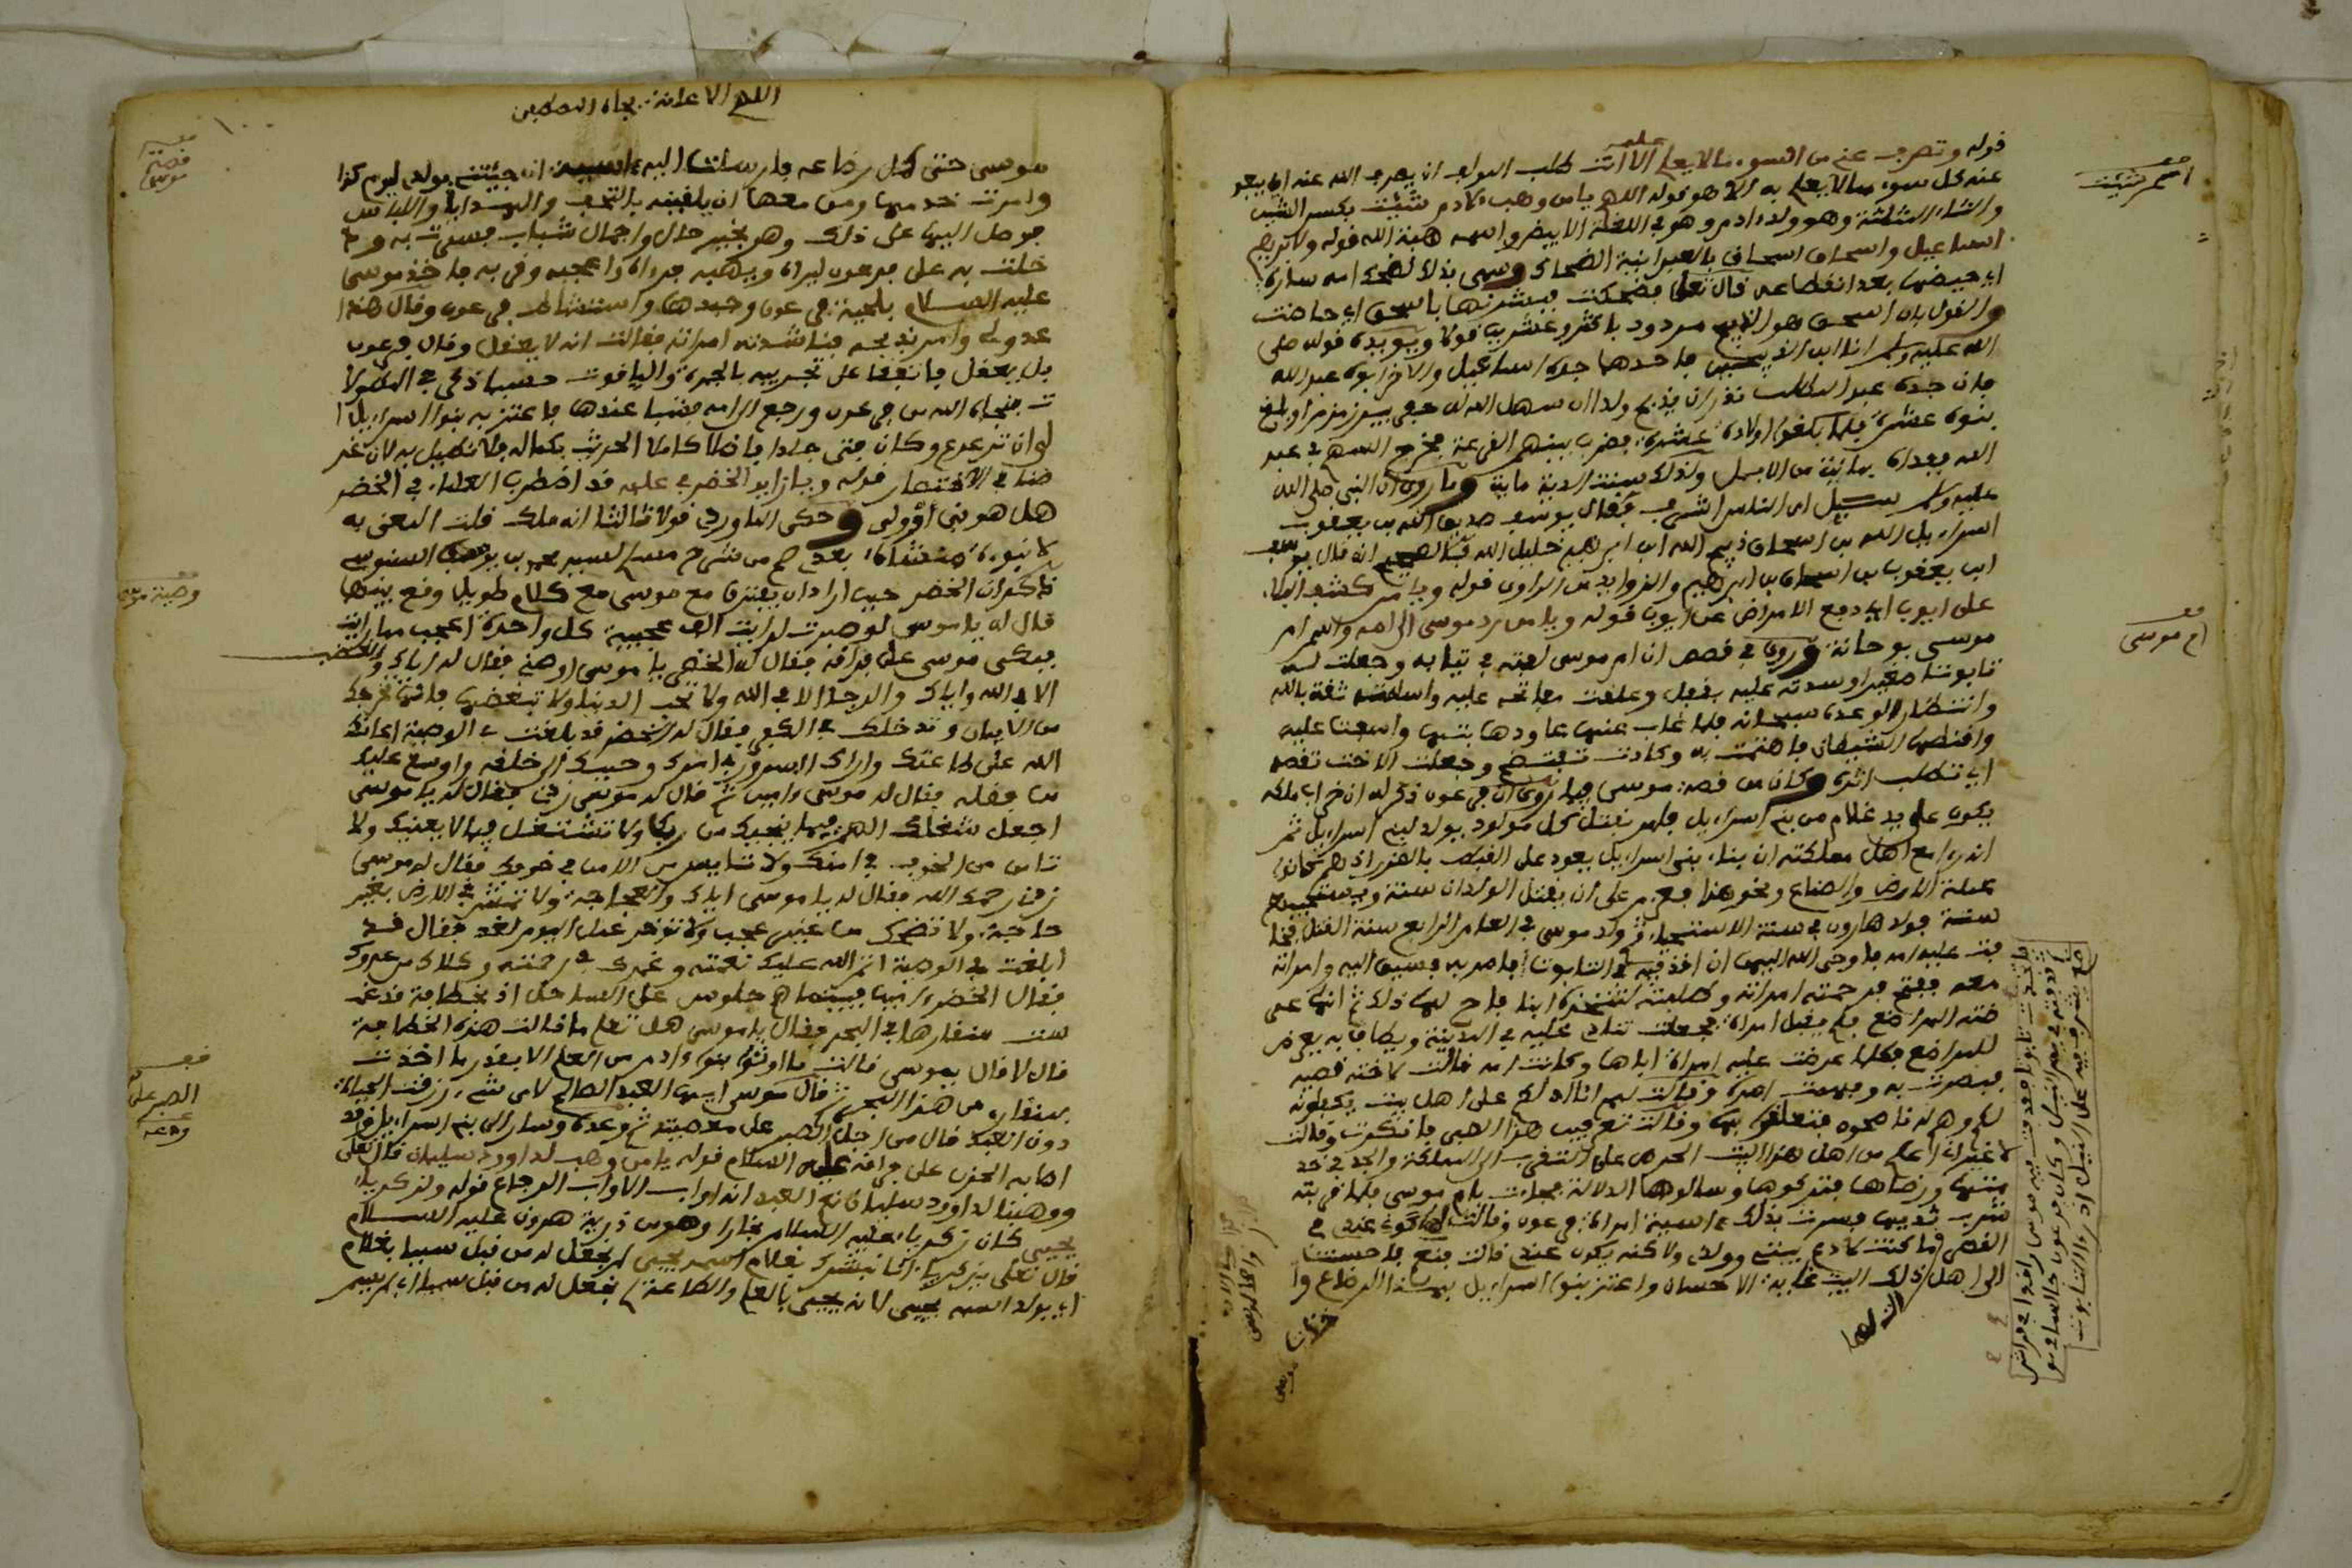 قوله وتصرف عني من السوء ما لا يعلم علمه الا انت طلب المولف ان يصرف الله عنه
عنه كل سوء مما لا يعلم به الا هو قوله اللهم يا من وهب لادم شيث بكسر الشين
والثاء المثلثة وهو ولد ادم وهو في اللغة الابيض واسمه هبة الله قوله ولابراهيم
اسماعيل واسحاق اسحاق بالعبرانية الضحاك وسمي بذلك لضحك امه سارة
اي حيضها بعد انقطاعه قال تعلى فضحكت فبشرنها باسحق اي حاضت
والقول بان اسحق هو الذبيح مردود باكثر وعشرين قولا ويويده قوله صلى
الله عليه وسلم انا ابن الذبيحين فاحدهما جده اسماعيل والاخر ابوه عبد الله
فان جده عبد المطلب نذر ان يذبح ولدا ان سهل الله له حفر بير زمزم او بلغ
بنوه عشرة فلما بلغوا اولاده عشرة فضرب بينهم القرعة فخرج السهم في عبد
الله ففداه بماية من الابل ولذلك سنت الدية ماية وما روي ان النبي صلى الله
عليه وسلم سيل اي الناس اشرف فقال يوسف صديق الله بن يعقوب
اسراءيل الله بن اسحاق ذبيح الله ابن ابرهيم خليل الله فالصحيح انه قال يوسف
ابن يعقوب بن اسحاق بن ابرهيم والزوايد من الراوي قوله ويا من كشف البلاء
على ايوب اي دفع الامراض عن ايوب قوله ويا من رد موسى الى امه واسم ام
موسى يوحانة وروي في قصص ان ام موسى لفته في ثيابه وجعلت له
تابوتا صغيرا وسدته عليه بقفل وعلقت مفاتحه عليه واسلمته ثقة بالله
وانتظارا لوعده سبحانه فلما غاب عنها عاودها بثها واسفت عليه
واقنطها الشيطان فاهتمت به وكادت تفتضح وجعلت الاخت تقصه
اي تطلب اثره وكان من قصة موسى فيما روي ان فرعون ذكر له ان خراب ملكه
يكون على يد غلام من بني اسراءيل فامر بقتل كل مولود يولد لبني اسراءيل ثم
انه راى مع اهل مملكته ان فناء بني اسراءيل يعود على القبط بالضرر اذ هم كانوا
عملة الارض والصناع ونحو هذا فعزم على ان يقتل الولدان سنة ويستحييهم
سنة فولد هارون في سنة الاستحياء ثم ولد موسى في العام الرابع سنة القتل فخا
فت عليه امه فاوحى الله اليها ان اقذفيه في التابوت فامر به فسيق اليه وامراته
معه ففتح فرحمته امراته وطلبته لتتخذه ابنا فاباح لها ذلك ثم انها عر
ضته المراضع فلم يقبل امراة فجعلت تنادي عليه في المدينة ويطاف به يعرض
للمراضع فكلما عرضت عليه امراة اباها وكانت امه قالت لاخته قصيه
فبصرت به وفهمت امره وقالت لهم انا ادلكم على اهل بيت يكفلونه
لكم وهم له ناصحون فتعلقوا بها وقالوا تعرفين هذا الصبي فانكرت وقالت
لا غير اني اعلم من اهل هذا البيت الحرص على التقرب الى المملكة والجد في خد
متها ورضاها فتركوها وسالوها الدلالة فجاءت بام موسى فلما قربته
شرب ثديها فسرت بذلك ءاسية امراة فرعون وقالت لها كوني عندي في
القصر ما كنت لادع بيتي وولدي ولاكنه يكون عندي قالت نعم فاحسنت
الى اهل ذلك البيت غاية الاحسان واعتز بنو اسراءيل بهذا الرضاع وا
اسم شيث
ام موسى
اللهم الاعانة بجاه المصطفى
موسى حتى كمل رضاعه فارسلت اليه ءاسية ان جيئني بولدي ليوم كذا
وامرت خدمها ومن معها ان يلقينه بالتحف والهدايا واللباس
فوصل اليها على ذلك وهو بخير حال واجمل شباب فسرت به ود
خلت به على فرعون ليراه ويهبه فرءاه واعجبه وقربه فاخذ موسى
عليه السلام بلحية فرعون وجبدها واستشاط فرعون وقال هذا
عدو لي وامر بذبحه فناشدته امراته فقالت انه لا يعقل وقال فرعون
بل يعقل فاتفقا على تجريبه بالجمرة والياقوت حسبما ذكر في المطولا
ت فنجاه الله من فرعون ورجع الى امه فنشا عندها فاعتز به بنوا اسراءيل ا
لى ان ترعرع وكان فتى جلدا فاضلا كاملا الحديث بكماله فلا نطيل به لان غر
ضنا في الاختصار قوله ويا زايد الخضر في علمه قد اضطرب العلماء في الخضر
هل هو نبي او ولي وحكى الماوردي قولا ثالثا انه ملك قلت المعنى به
ذكر ان الخضر حين اراد ان يفترق مع موسى مع كلام طويل وقع بينهما
قال له يا موسى لو صبرت لرايت الف عجيبة كل واحدة اعجب مما رايت
فبكى موسى على فراقه فقال له الخضر يا موسى اوصني فقال له اياك والغضب
الا في الله واياك والرضا الا في الله ولا تحب الدنيا ولا تبغضها فانها تخرجك
من الايمان وتدخلك في الكفر فقال له الخضر قد بلغت في الوصية اعانك
الله على طاعتك واراك السرور في امرك وحببك الى خلقه واوسع عليك
من فضله فقال له موسى ءامين ثم قال له موسى زدني فقال له يا موسى
اجعل شغلك الهم فيما ينجيك من ربك ولا تشتغل فيما لا يعنيك ولا
تامن من الخوف في امنك ولا تايس من الامن في خوفك فقال له موسى
زدني رحمك الله فقال له يا موسى اياك والحاجة ولا تمش في الارض بغير
حاجة ولا تضحك من غير عجب ولا توخر عمل اليوم لغد فقال قد
ابلغت في الوصية اتم الله عليك نعمته وغمرك في رحمته وكلاك من عدوك
فقال الخضر ءامين فبينما هم جلوس على الساحل اذ بخطافة قد غمـ
ست منقارها في البحر فقال يا موسى هل تعلم ما قالت هذه الخطافة
قال لا قال يموسى قالت ما اوتوا بنو ءادم من العلم الا بقدر ما اخذت
بمنقاري من هذا البحر ثم قال موسى ايها العبد الصالح لاي شيء رزقت الحياة
دون العبد قال من اجل الصبر على معصيته ثم وعده وسار الى بني اسراءيل وقد
اصابه الحزن على فراقه عليه السلام قوله يا من وهب لداوود سليمان قال تعلى
ووهبنا لداوود سليمان نعم العبد انه اواب الاواب الرجاع قوله ولزكرياء
يحيى كان زكرياء عليه السلام نجارا وهو من ذرية هرون عليه السلام
قال تعلى يزكرياء انا نبشرك بغلام اسمه يحيى لم نجعل له من قبل سميا بغلام
اي بولد اسمه يحيى لانه يحيى بالعلم والطاعة لم نجعل له من قبل سميا اي لم يسم
قصة موسى
وصية موسى
الصبر على